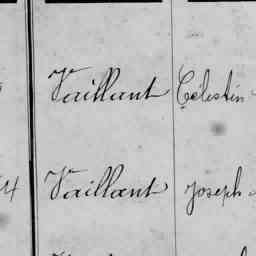 Vaillant Célestin
4 Vaillant Joseph